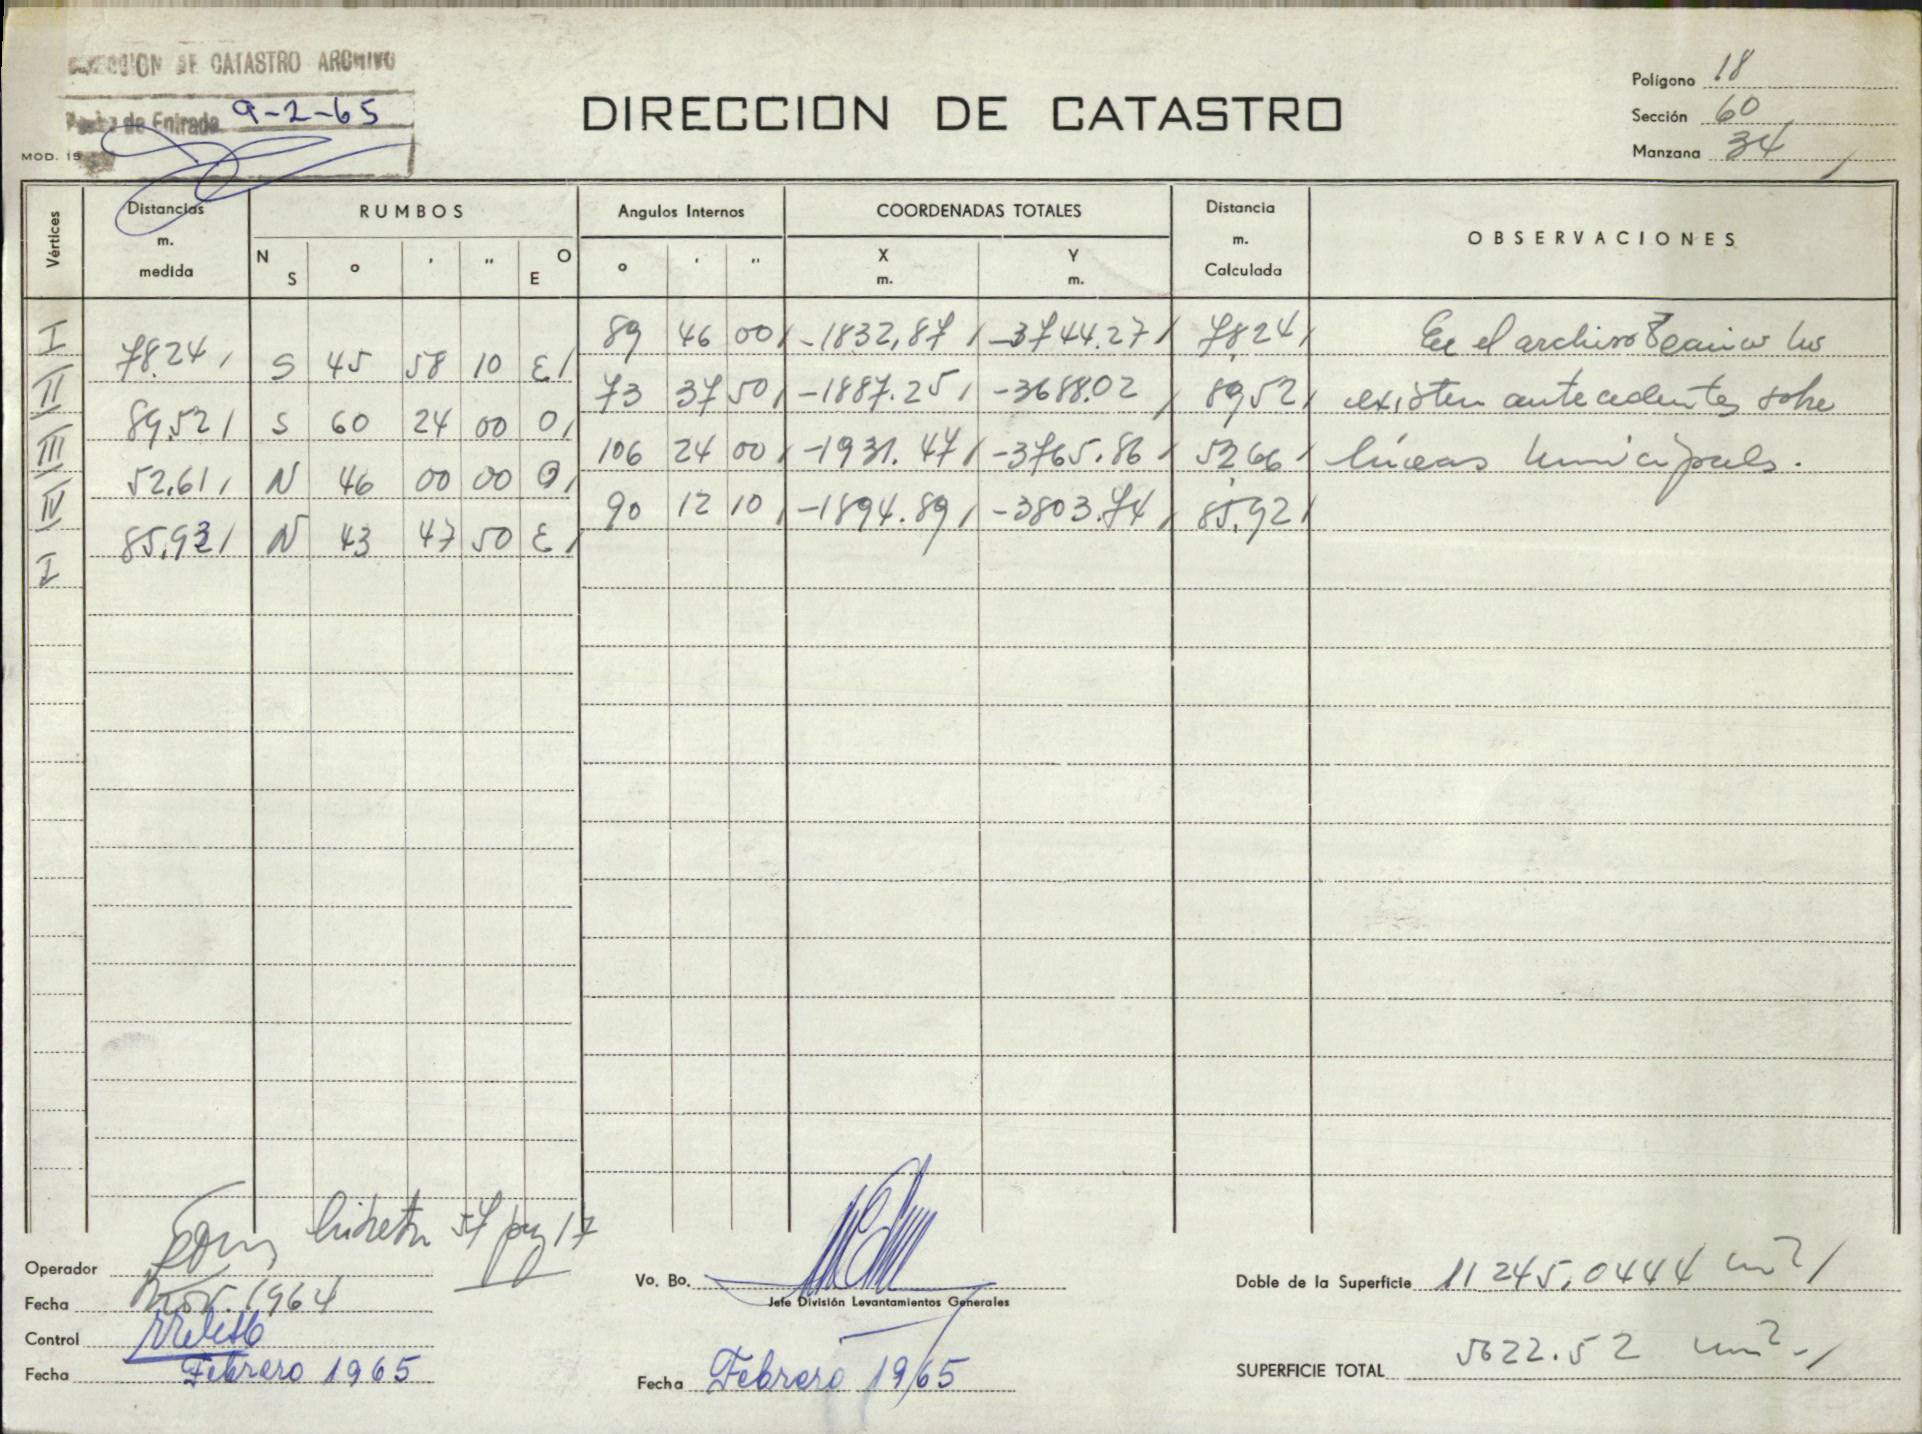 DIRECCION DE CATASTRO ARCHIVO
Fecha de Entrada 9-2-65
MOD. 15
DIRECCION DE CATASTRO
Polígono 18
Sección 60
Manzana 34
Vértices Distancias m. medida RUMBOS N S ° ' " O E Angulos Internos ° ' " COORDENADAS TOTALES X m. Y m. Distancia m. Calculada OBSERVACIONES
I 89 46 00 -1832,87 -3744.27 78,24 En el archivo Tecnico
78.24 S 45 58 10 E
II 73 37 50 -1887.25 -3688.02 89,52 existen antecedentes sobre
89,52 S 60 24 00 O
III 106 24 00 -1931.47 -3765.86 52,66 lineas
52.61 N 46 00 00 O
IV 90 12 10 -1894.89 -3803.74 85,92
85,93 N 43 47 50 E
I
libreta 57 pag 17
Operador
Fecha Nov. 1964
Control
Fecha Febrero 1965
Vo. Bo.
Jefe División Levantamientos Generales
Fecha Febrero 1965
Doble de la Superficie 11245,0444 m²
SUPERFICIE TOTAL 5622.52 m².